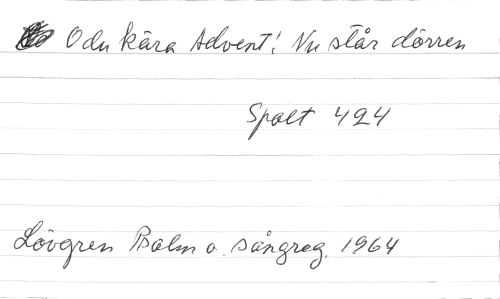 O du kära Advent! Nu står dörren
Spalt 424
Lövgren Psalm o. sångreg. 1964